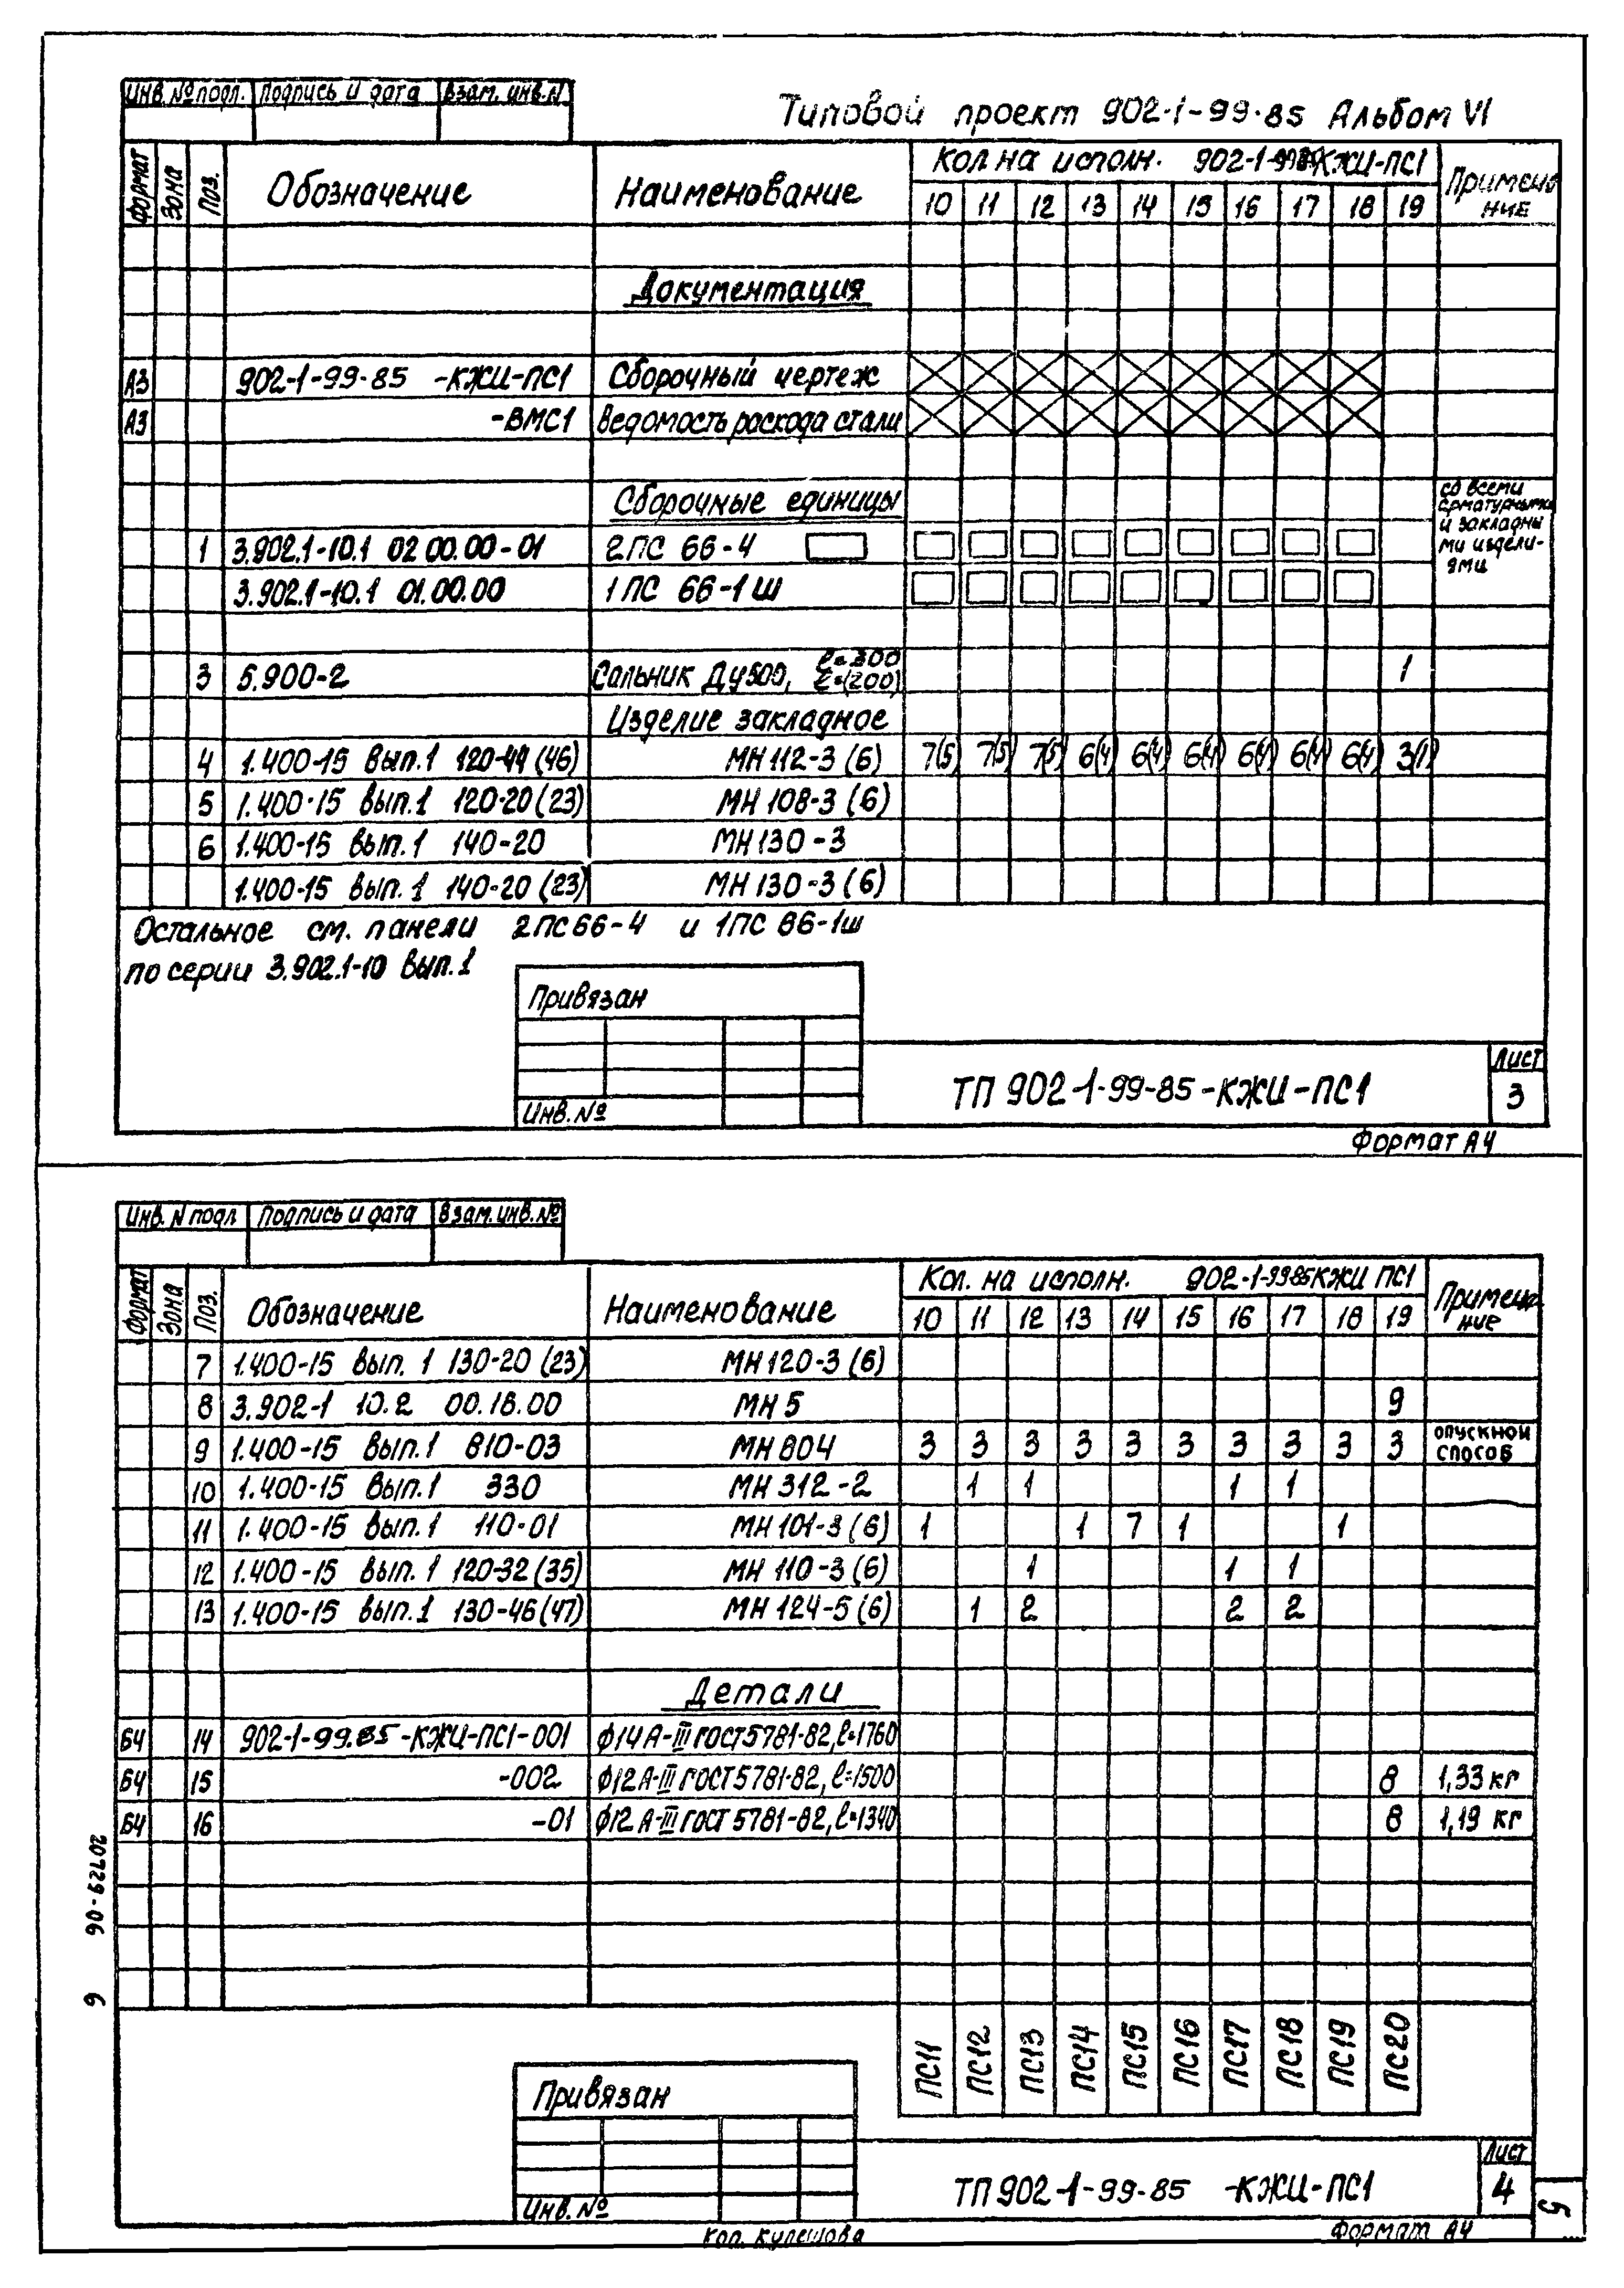 Инв. № подл. Подпись и дата Взам. инв. N
Типовой проект 902-1-99-85 Альбом VI
Формат Зона Поз. Обозначение Наименование Кол на исполн. 902-1-9985КЖИ-ПС1 Примечание
10 11 12 13 14 15 16 17 18 19
Документация
А3 902-1-99-85 -КЖИ-ПС1 Сборочный чертеж
А3 -ВМС1 Ведомость расхода стали
Сборочные единицы
со всеми
арматурными
и закладны
ми издели-
ями
1 3.902.1-10.1 02 00.00-01 2ПС 66-4
3.902.1-10.1 01.00.00 1ПС 66-1Ш
3 5.900-2 Сальник Ду500, ℓ=300 1
ℓ=(200)
Изделие закладное
4 1.400-15 Вып.1 120-44 (46) МН 112-3 (6) 7(5) 7(5) 7(5) 6(4) 6(4) 6(4) 6(4) 6(4) 6(4) 3(1)
5 1.400-15 Вып.1 120-20 (23) МН 108-3 (6)
6 1.400-15 Вып.1 140-20 МН 130-3
1.400-15 Вып.1 140-20 (23) МН 130-3 (6)
Остальное см. панели 2ПС66-4 и 1ПС 66-1ш
по серии 3.902.1-10 Вып.1
Привязан
Инв. №
ТП 902-1-99-85-КЖИ-ПС1
Лист
3
Формат А4
Инв. N подл Подпись и дата Взам. инв. №
Формат Зона Поз. Обозначение Наименование Кол. на исполн. 902-1-9985КЖИ ПС1 Примеча-
ние
10 11 12 13 14 15 16 17 18 19
7 1.400-15 Вып. 1 130-20 (23) МН 120-3 (6)
8 3.902-1 10.2 00.18.00 МН 5 9
9 1.400-15 Вып.1 810-03 МН 804 3 3 3 3 3 3 3 3 3 3 опускной
способ
10 1.400-15 Вып.1 330 МН 312-2 1 1 1 1
11 1.400-15 Вып.1 110-01 МН 101-3 (6) 1 1 7 1 1
12 1.400-15 Вып. 1 120-32 (35) МН 110-3 (6) 1 1 1
13 1.400-15 Вып.1 130-46 (47) МН 124-5 (6) 1 2 2 2
Детали
БЧ 14 902-1-99.85-КЖИ-ПС1-001 ф14А-III ГОСТ5781-82, ℓ=1760
БЧ 15 -002 ф12А-III ГОСТ5781-82, ℓ=1500 8 1,33 кг
БЧ 16 -01 ф12А-III ГОСТ 5781-82, ℓ=1340 8 1,19 кг
20729-06 6
ПС11 ПС12 ПС13 ПС14 ПС15 ПС16 ПС17 ПС18 ПС19 ПС20
Привязан
Инв. №
ТП 902-1-99-85 -КЖИ-ПС1
Лист
4
5
Коп. Кулешова
Формат А4